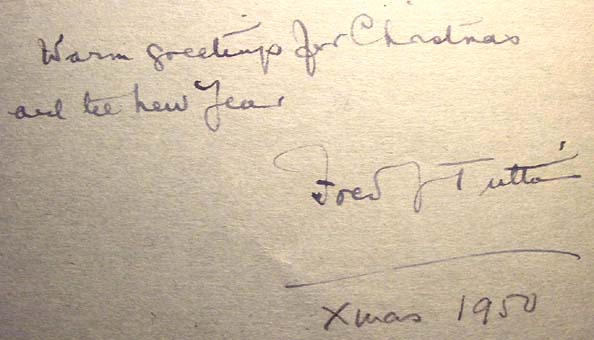 Warm greetings for Christmas
and the New Year
Fred J Tutton
Xmas 1950